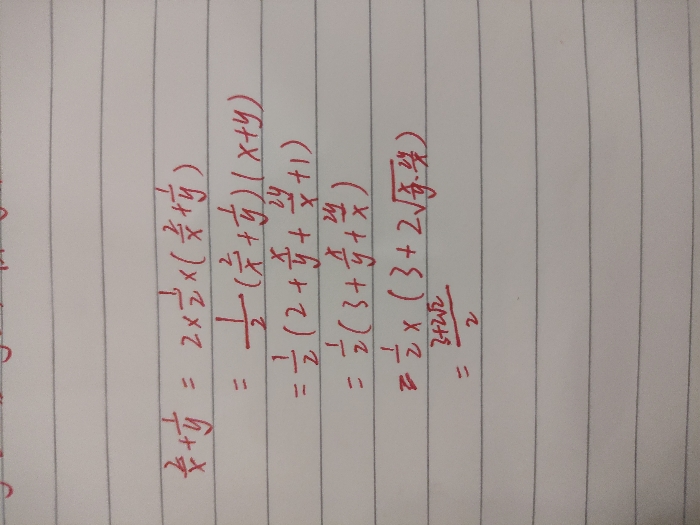 2/x + 1/y = 2 × 1/2 × (2/x + 1/y)
= 1/2 (2/x + 1/y)(x+y)
= 1/2 (2 + x/y + 2y/x + 1)
= 1/2 (3 + x/y + 2y/x)
= 1/2 × (3 + 2√(x/y · 2y/x))
= (3+2√2)/2